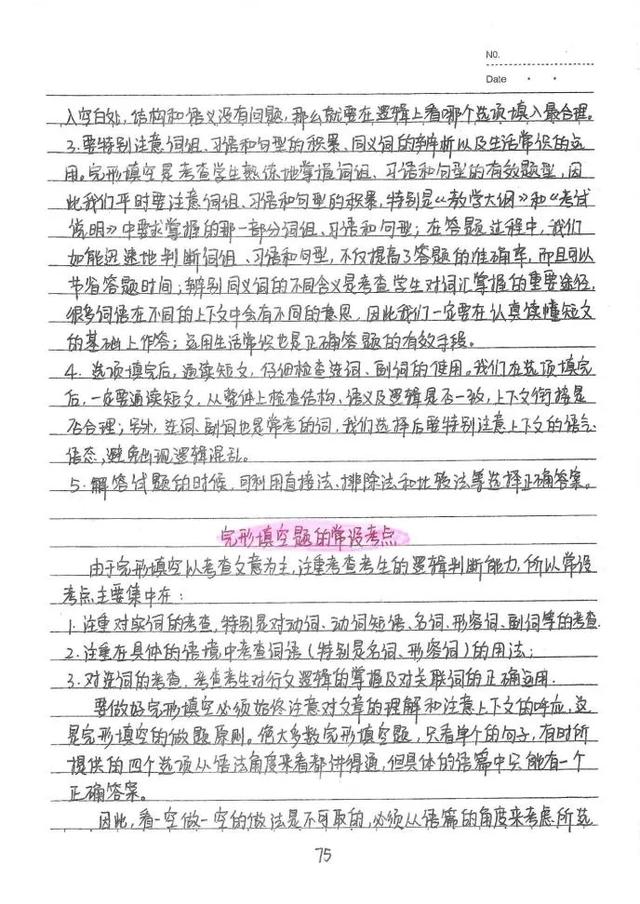 NO.
Date
入空白处,结构和语义没有问题,那么就要在逻辑上看哪个选项填入最合理。
3.要特别注意词组、习语和句型的积累、同义词的辨析以及生活常识的运
用。完形填空是考查学生熟练地掌握词组、习语和句型的有效题型,因
此我们平时要注意词组、习语和句型的积累,特别是《教学大纲》和《考试
说明》中要求掌握的那一部分词组、习语和句型;在答题过程中,我们
如能迅速地判断词组、习语和句型,不仅提高了答题的准确率,而且可以
节省答题时间;辨别同义词的不同含义是考查学生对词汇掌握的重要途径,
很多词语在不同的上下文中会有不同的意思,因此我们一定要在认真读懂短文
的基础上作答;运用生活常识也是正确答题的有效手段。
4.选项填完后,通读短文,仔细检查连词、副词的使用。我们在选项填完
后,一定要通读短文,从整体上检查结构、语义及逻辑是否一致,上下文衔接是
否合理;另外,连词、副词也是常考的词,我们选择后要特别注意上下文的语气、
语态,避免出现逻辑混乱。
5.解答试题的时候,可利用直接法、排除法和比较法等选择正确答案。
完形填空题的常设考点
由于完形填空以考查文意为主,注重考查考生的逻辑判断能力,所以常设
考点主要集中在:
1.注重对实词的考查,特别是对动词、动词短语、名词、形容词、副词等的考查.
2.注重在具体的语境中考查词语(特别是名词、形容词)的用法;
3.对连词的考查,考查考生对行文逻辑的掌握及对关联词的正确运用.
要做好完形填空必须始终注意对文章的理解和注意上下文的呼应,这
是完形填空的做题原则。绝大多数完形填空题,只看单个的句子,有时所
提供的四个选项从语法角度来看都讲得通,但具体的语篇中只能有一个
正确答案。
因此,看一空做一空的做法是不可取的,必须从语篇的角度来考虑所选
75